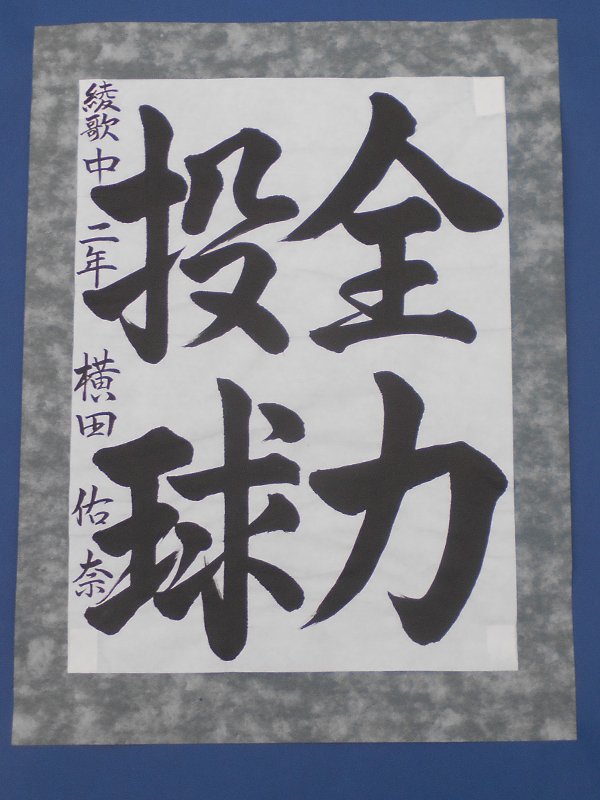 全力
投球
綾歌中 二年 横田 佑奈